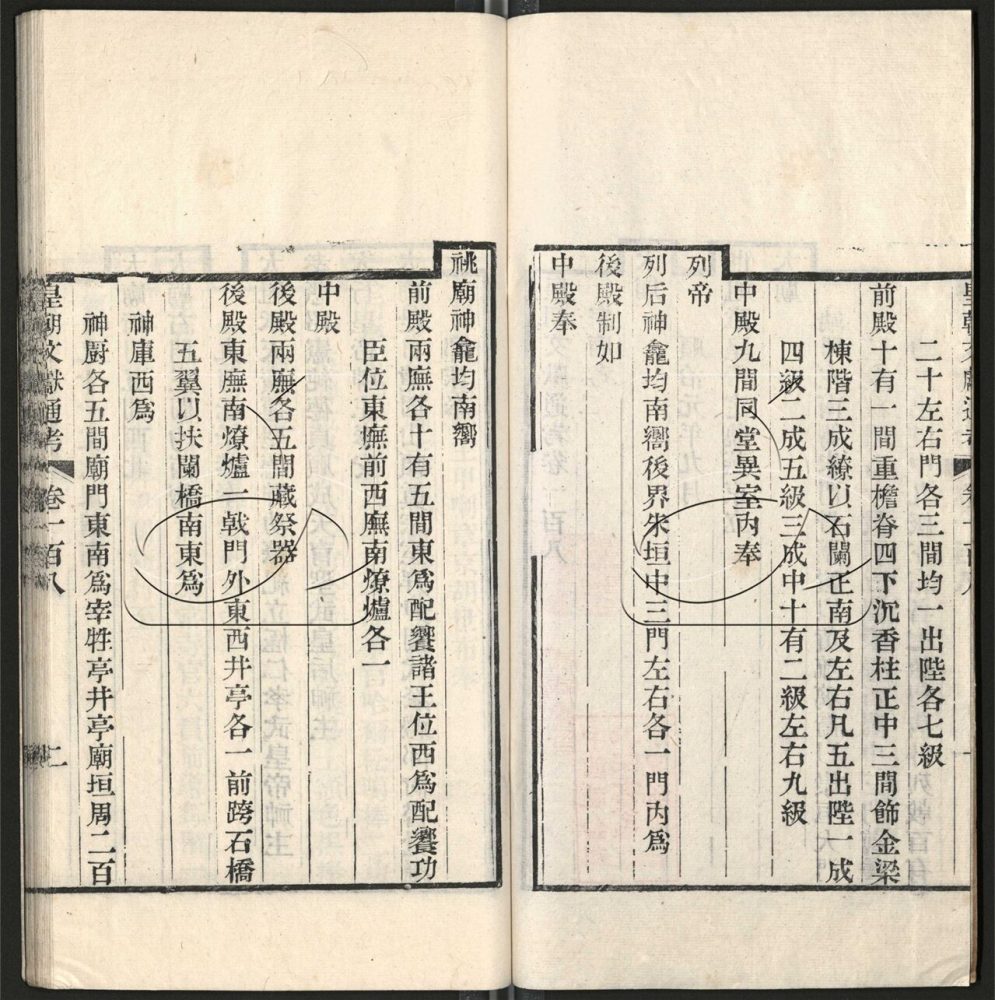 二十左右門各三間均一出陛各七級
前殿十有一間重檐脊四下沉香柱正中三間飾金梁
棟階三成繚以石闌正南及左右凡五出陛一成
四級二成五級三成中十有二級左右九級
中殿九間同堂異室內奉
列帝
列后神龕均南嚮後界朱垣中三門左右各一門內為
後殿制如
中殿奉
祧廟神龕均南嚮
前殿兩廡各十有五間東為配饗諸王位西為配饗功
臣位東廡前西廡南燎爐各一
中殿
後殿兩廡各五間藏祭器
後殿東廡南燎爐一戟門外東西井亭各一前跨石橋
五翼以扶闌橋南東為
神庫西為
神厨各五間廟門東南為宰牲亭井亭廟垣周二百
皇朝文獻通考 卷一百八 二